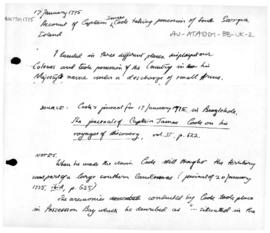 17 January 1775
Account of Captain James Cook taking possession of South Georgia
Island
AU-ATADD1-BB-UK-2
I landed in three different places displayed our
Colours and took possession of the Country in his
Majestys name under a discharge of small arms.
SOURCE: Cook's journal for 17 January 1775, in Beaglehole,
The journals of Captain James Cook on his
voyages of discovery, vol. II, p. 622.
NOTES.
When he made the claim Cook still thought the territory
was part of a large southern Continent (journal 20 January
1775, ibid, p. 625)
The ceremonies conducted by Cook took place
in Possession Bay which he described as "situated in the